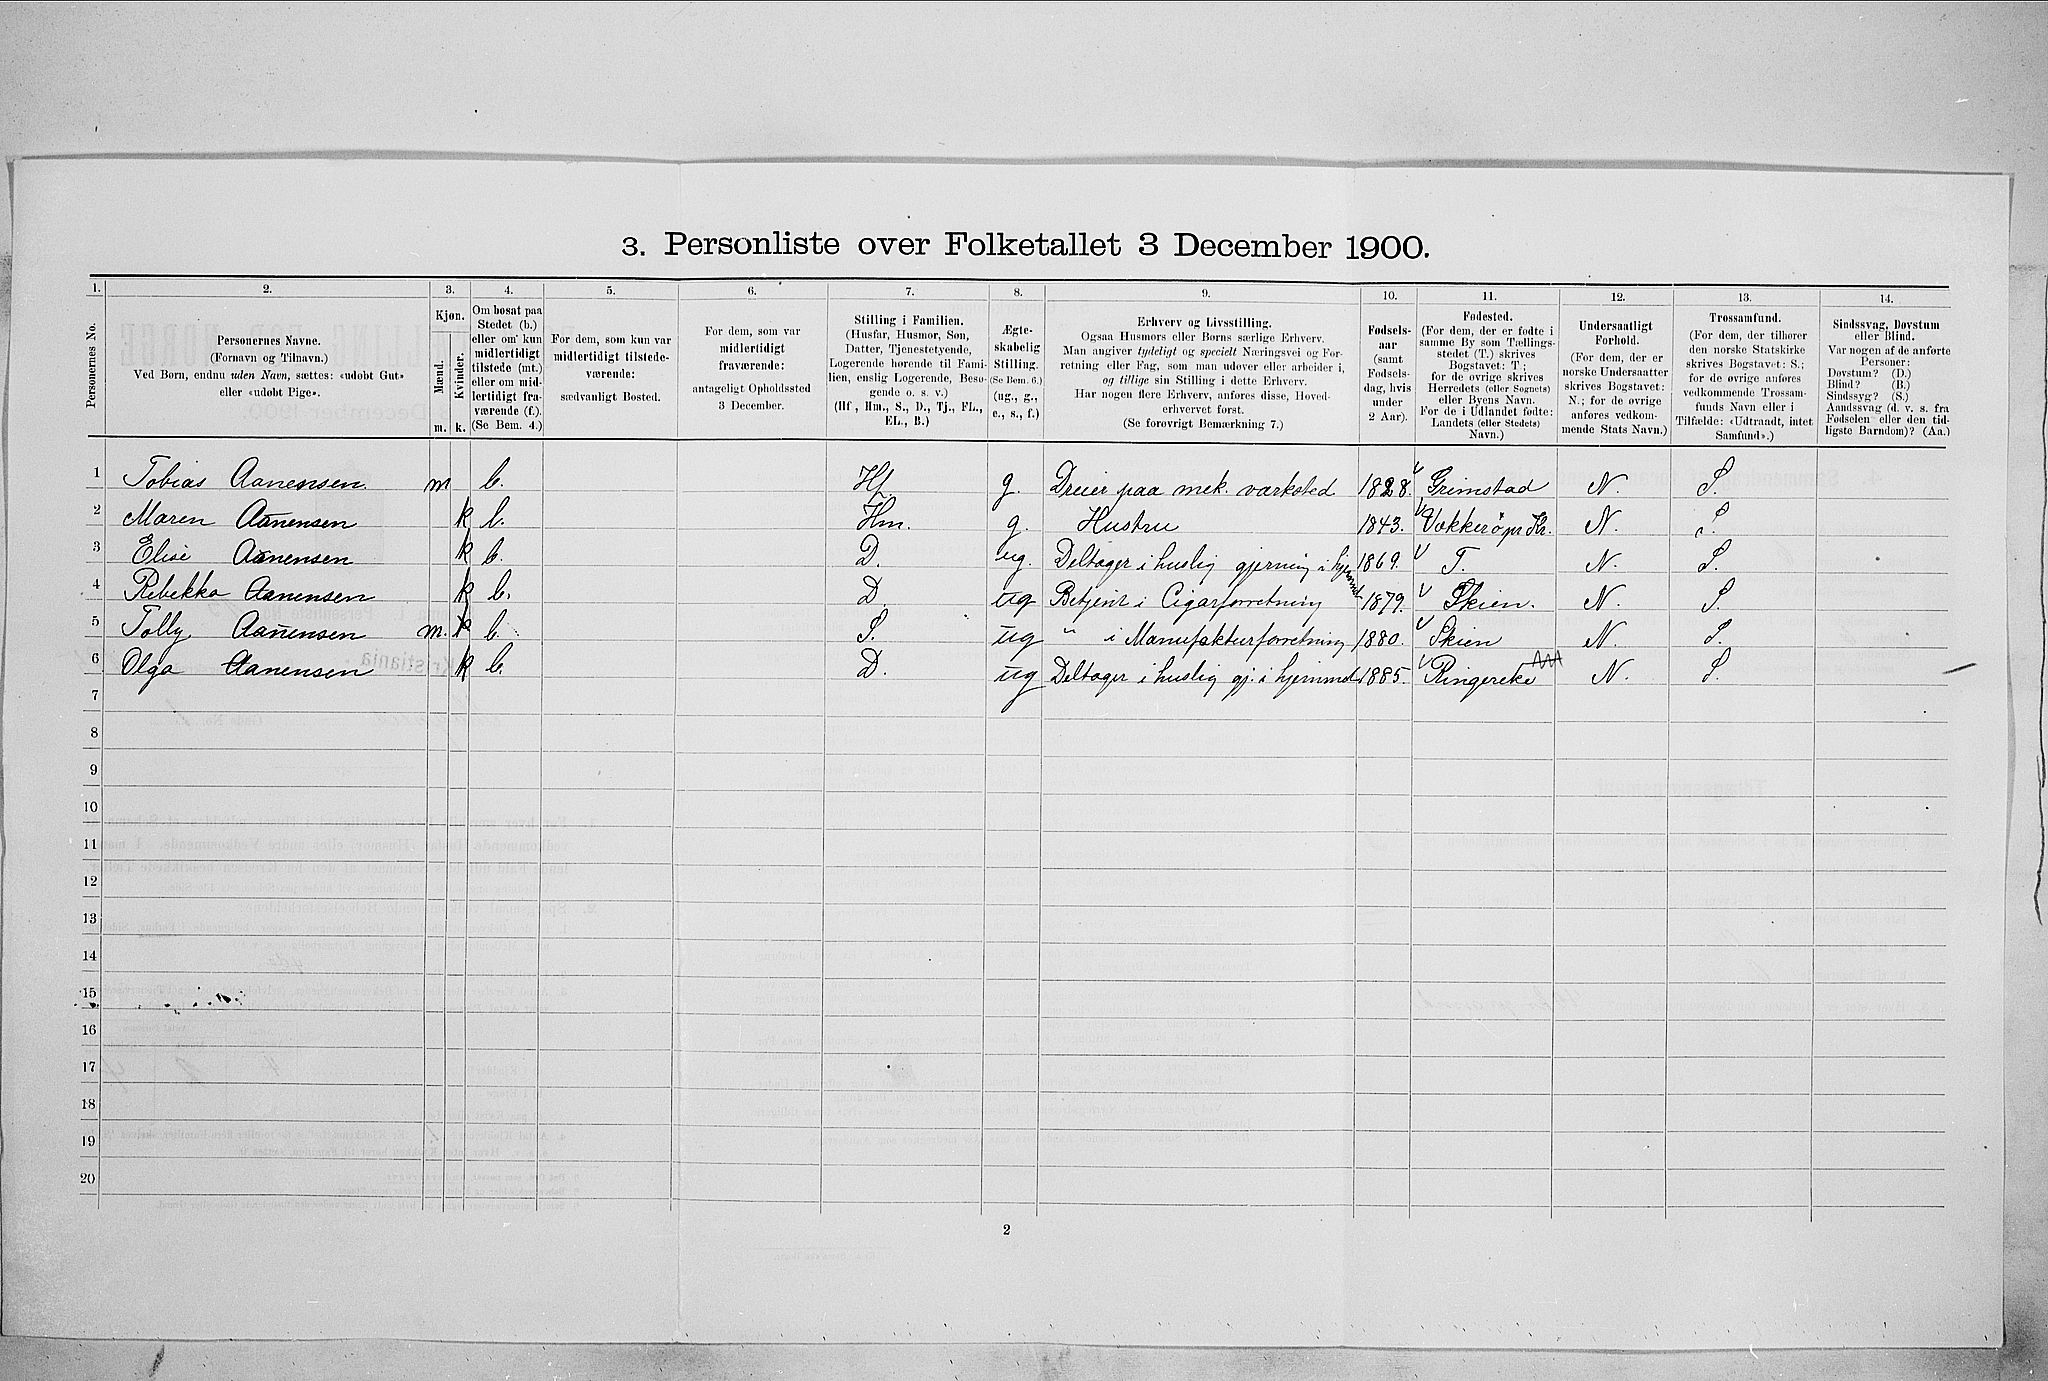 3. Personliste over Folketallet 3 December 1900.
1. 2. 3. 4. 5. 6. 7. 8. 9. 10. 11. 12. 13. 14.
Personernes No.
Personernes Navne.
(Fornavn og Tilnavn.)
Ved Børn, endnu uden Navn, sættes: «udøbt Gut»
eller «udøbt Pige».
Kjøn.
Mænd.
Kvinder.
m. k.
Om bosat paa
Stedet (b.)
eller om kun
midlertidigt
tilstede (mt.)
eller om mid-
lertidigt fra-
værende (f.).
(Se Bem. 4.)
For dem, som kun var
midlertidigt tilstede-
værende:
sædvanligt Bosted.
For dem, som var
midlertidigt
fraværende:
antageligt Opholdssted
3 December.
Stilling i Familien.
(Husfar, Husmor, Søn,
Datter, Tjenestetyende,
Logerende hørende til Fami-
lien, enslig Logerende, Besø-
gende o. s. v.)
(Hf, Hm., S., D., Tj., FL.,
EL., B.)
Ægte-
skabelig
Stilling.
(Se Bem. 6.)
(ug., g.,
e., s., f.)
Erhverv og Livsstilling.
Ogsaa Husmors eller Børns særlige Erhverv.
Man angiver tydeligt og specielt Næringsvei og For-
retning eller Fag, som man udøver eller arbeider i,
og tillige sin Stilling i dette Erhverv.
Har nogen flere Erhverv, anføres disse, Hoved-
erhvervet først.
(Se forøvrigt Bemærkning 7.)
Fødsels-
aar
(samt
Fødsels-
dag, hvis
under
2 Aar).
Fødested.
(For dem, der er fødte i
samme By som Tællings-
stedet (T.) skrives
Bogstavet: T;
for de øvrige skrives
Herredets (eller Sognets)
eller Byens Navn.
For de i Udlandet fødte:
Landets (eller Stedets)
Navn.)
Undersaatligt
Forhold.
(For dem, der er
norske Undersaatter
skrives Bogstavet:
N.; for de øvrige
anføres vedkom-
mende Stats Navn.)
Trossamfund.
(For dem, der tilhører
den norske Statskirke
skrives Bogstavet: S.;
for de øvrige anføres
vedkommende Trossam-
funds Navn eller i
Tilfælde: «Udtraadt, intet
Samfund».)
Sindssvag, Døvstum
eller Blind.
Var nogen af de anførte
Personer:
Døvstum? (D.)
Blind? (B.)
Sindssyg? (S.)
Aandssvag (d. v. s. fra
Fødselen eller den tid-
ligste Barndom)? (Aa.)
1 Tobias Aanensen m b. Hf g. Dreier paa mek. værksted 1828. Grimstad N. S.
2 Maren Aanensen k b. Hm. g. Hustru 1843. Vækkerö pr Kr. N. S.
3 Elise Aanensen k b. D. ug. Deltager i huslig gjerning i hjemmet 1869. T. N. S.
4 Rebekka Aanensen k b. D. ug Betjent i Cigarforretning 1879. Skien. N. S.
5 Tolly Aanensen m. k b. S. ug " i Manufakturforretning 1880. Skien N. S.
6 Olga Aanensen k b. D. ug Deltager i huslig gj. i hjemmet 1885. Ringerike N. S.
7
8
9
10
11
12
13
14
15
16
17
18
19
20
2